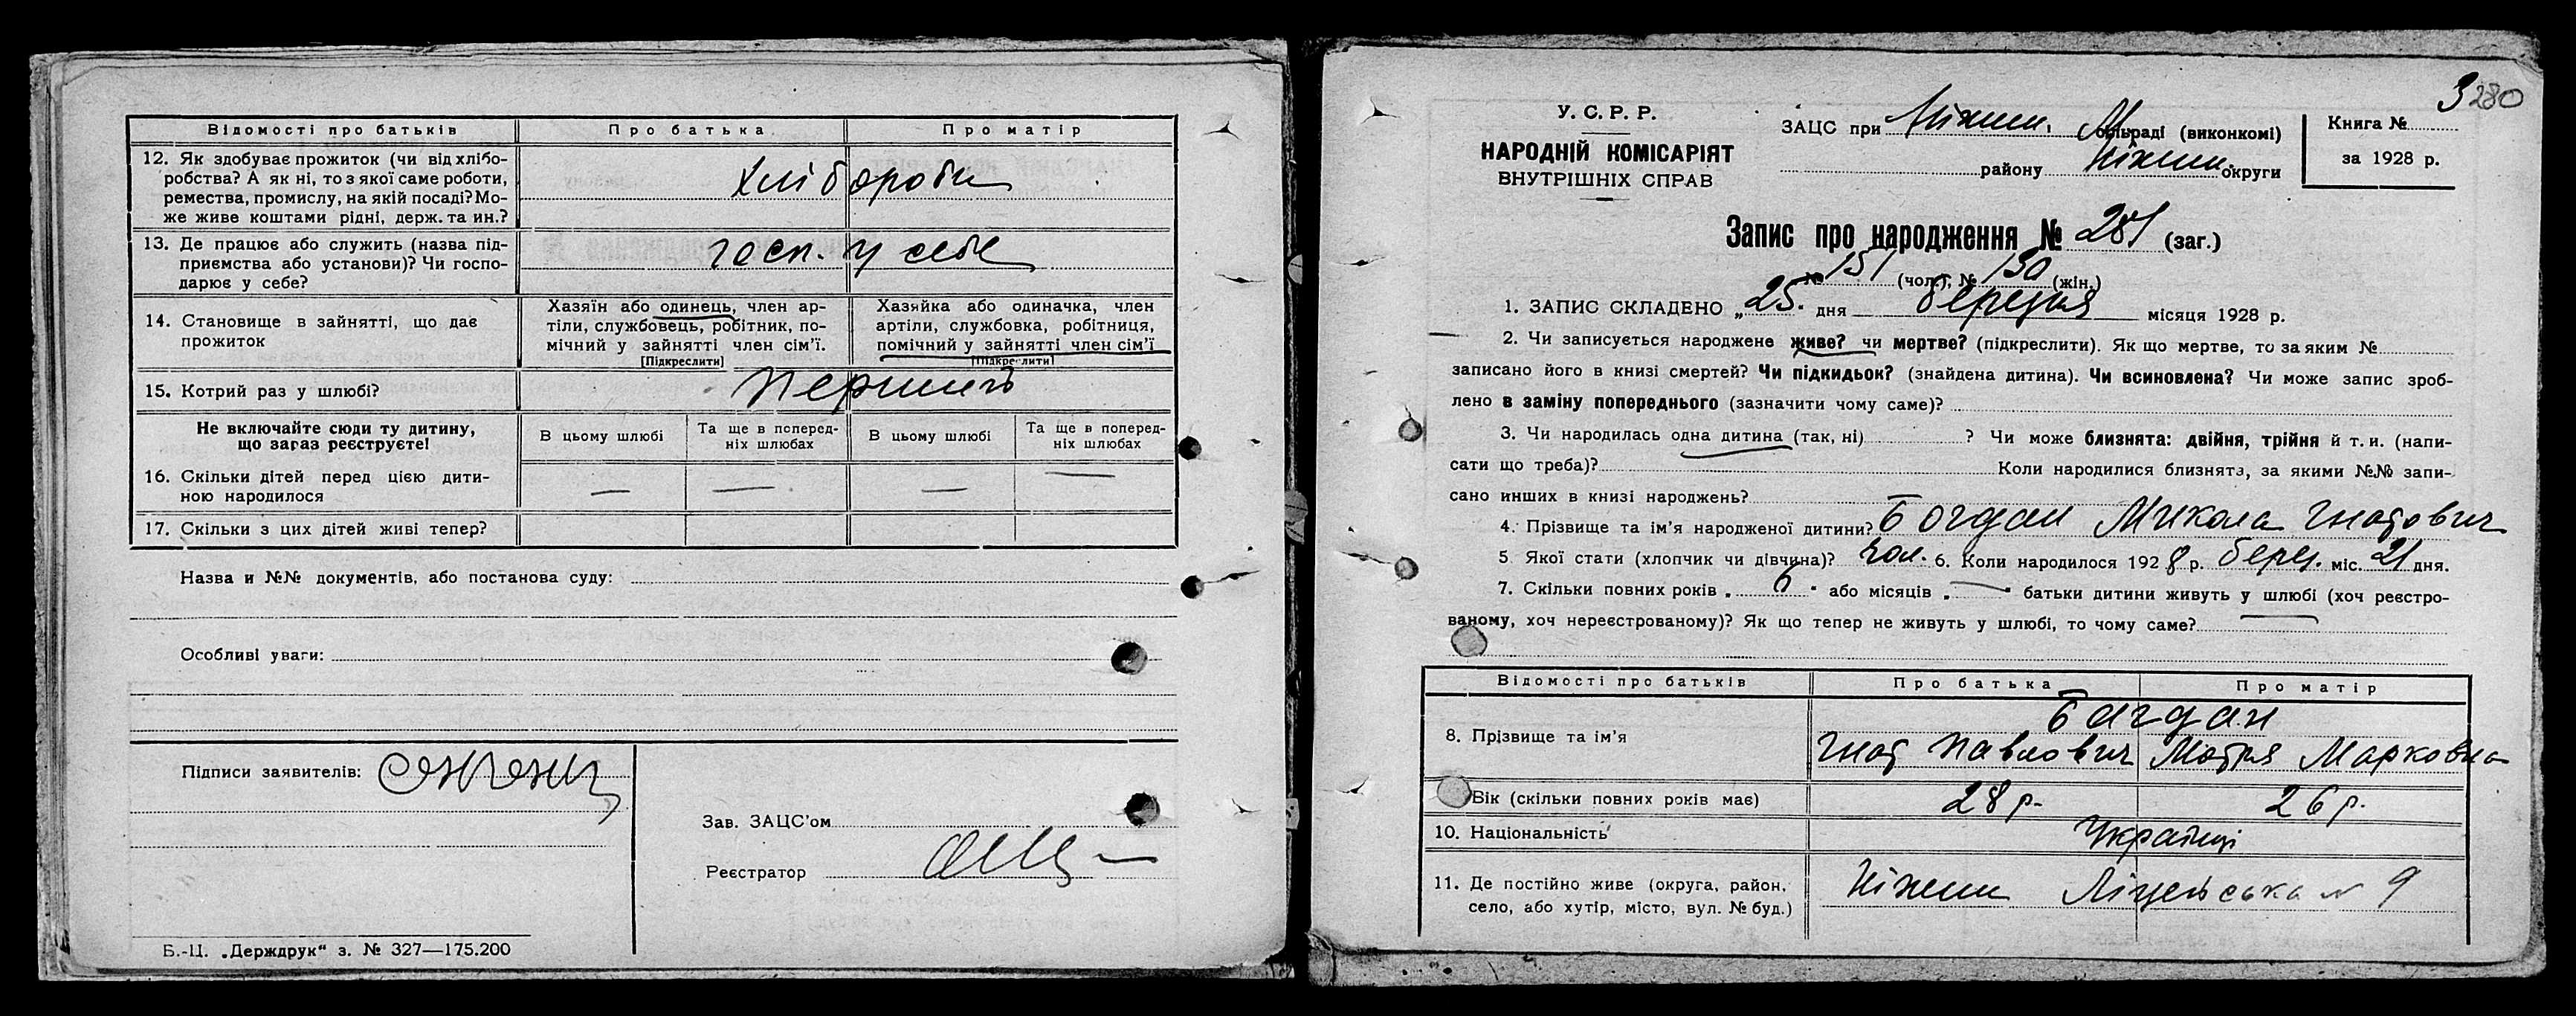 Відомості про батьків Про батька Про матір
12. Як здобуває прожиток (чи від хлібо-
робства? А як ні, то з якої саме роботи,
ремества, промислу, на якій посаді? Мо-
же живе коштами рідні, держ. та ин.?
хлібороби
13. Де працює або служить (назва під-
приємства або установи)? Чи госпо-
дарює у себе?
госп. у себе
14. Становище в зайнятті, що дає
прожиток
Хазяїн або одинець, член ар-
тіли, службовець, робітник, по-
мічний у зайнятті член сім'ї.
[Підкреслити]
Хазяйка або одиначка, член
артіли, службовка, робітниця,
помічний у зайнятті член сім'ї
[Підкреслити]
15. Котрий раз у шлюбі?
Не включайте сюди ту дитину,
що зараз реєструєте!
В цьому шлюбі
Та ще в поперед-
ніх шлюбах
В цьому шлюбі
Та ще в поперед-
ніх шлюбах
16. Скільки дітей перед цією дити-
ною народилося
— — — —
17. Скільки з цих дітей живі тепер?
Назва и №№ документів, або постанова суду:
Особливі уваги:
Підписи заявителів:
Зав. ЗАЦС'ом
Реєстратор
Б.-Ц. „Держдрук“ з. № 327—175.200
3 280
У. С. Р. Р.
НАРОДНІЙ КОМІСАРІЯТ
ВНУТРІШНІХ СПРАВ
ЗАЦС при Ніжин. М (виконкомі)
району Ніжин. округи
Книга №
за 1928 р.
Запис про народження № 281 (заг.)
№ 151 (чол.), № 130 (жін.)
1. ЗАПИС СКЛАДЕНО „25" дня березня місяця 1928 р.
2. Чи записується народжене живе? чи мертве? (підкреслити). Як що мертве, то за яким №
записано його в книзі смертей? Чи підкидьок? (знайдена дитина). Чи всиновлена? Чи може запис зроб-
лено в заміну попереднього (зазначити чому саме)?
3. Чи народилась одна дитина (так, ні) ? Чи може близнята: двійня, трійня й т. и. (напи-
сати що треба)? Коли народилися близнята, за якими №№ запи-
сано инших в книзі народжень?
4. Прізвище та ім'я народженої дитини? Богдан Микола Гнатович
5 Якої стати (хлопчик чи дівчина)? чол. 6. Коли народилося 1928 р. берез. міс. 21 дня.
7. Скільки повних років „ 6 " або місяців „ — " батьки дитини живуть у шлюбі (хоч реєстро-
ваному, хоч нереєстрованому)? Як що тепер не живуть у шлюбі, то чому саме?
Відомості про батьків Про батька Про матір
8. Прізвище та ім'я
Богдан
Гнат Павлович Мотря Марковна
Вік (скільки повних років має) 28 р. 26 р.
10. Національність Українці
11. Де постійно живе (округа, район,
село, або хутір, місто, вул. № буд.)
Ніжин Ліцейська № 9